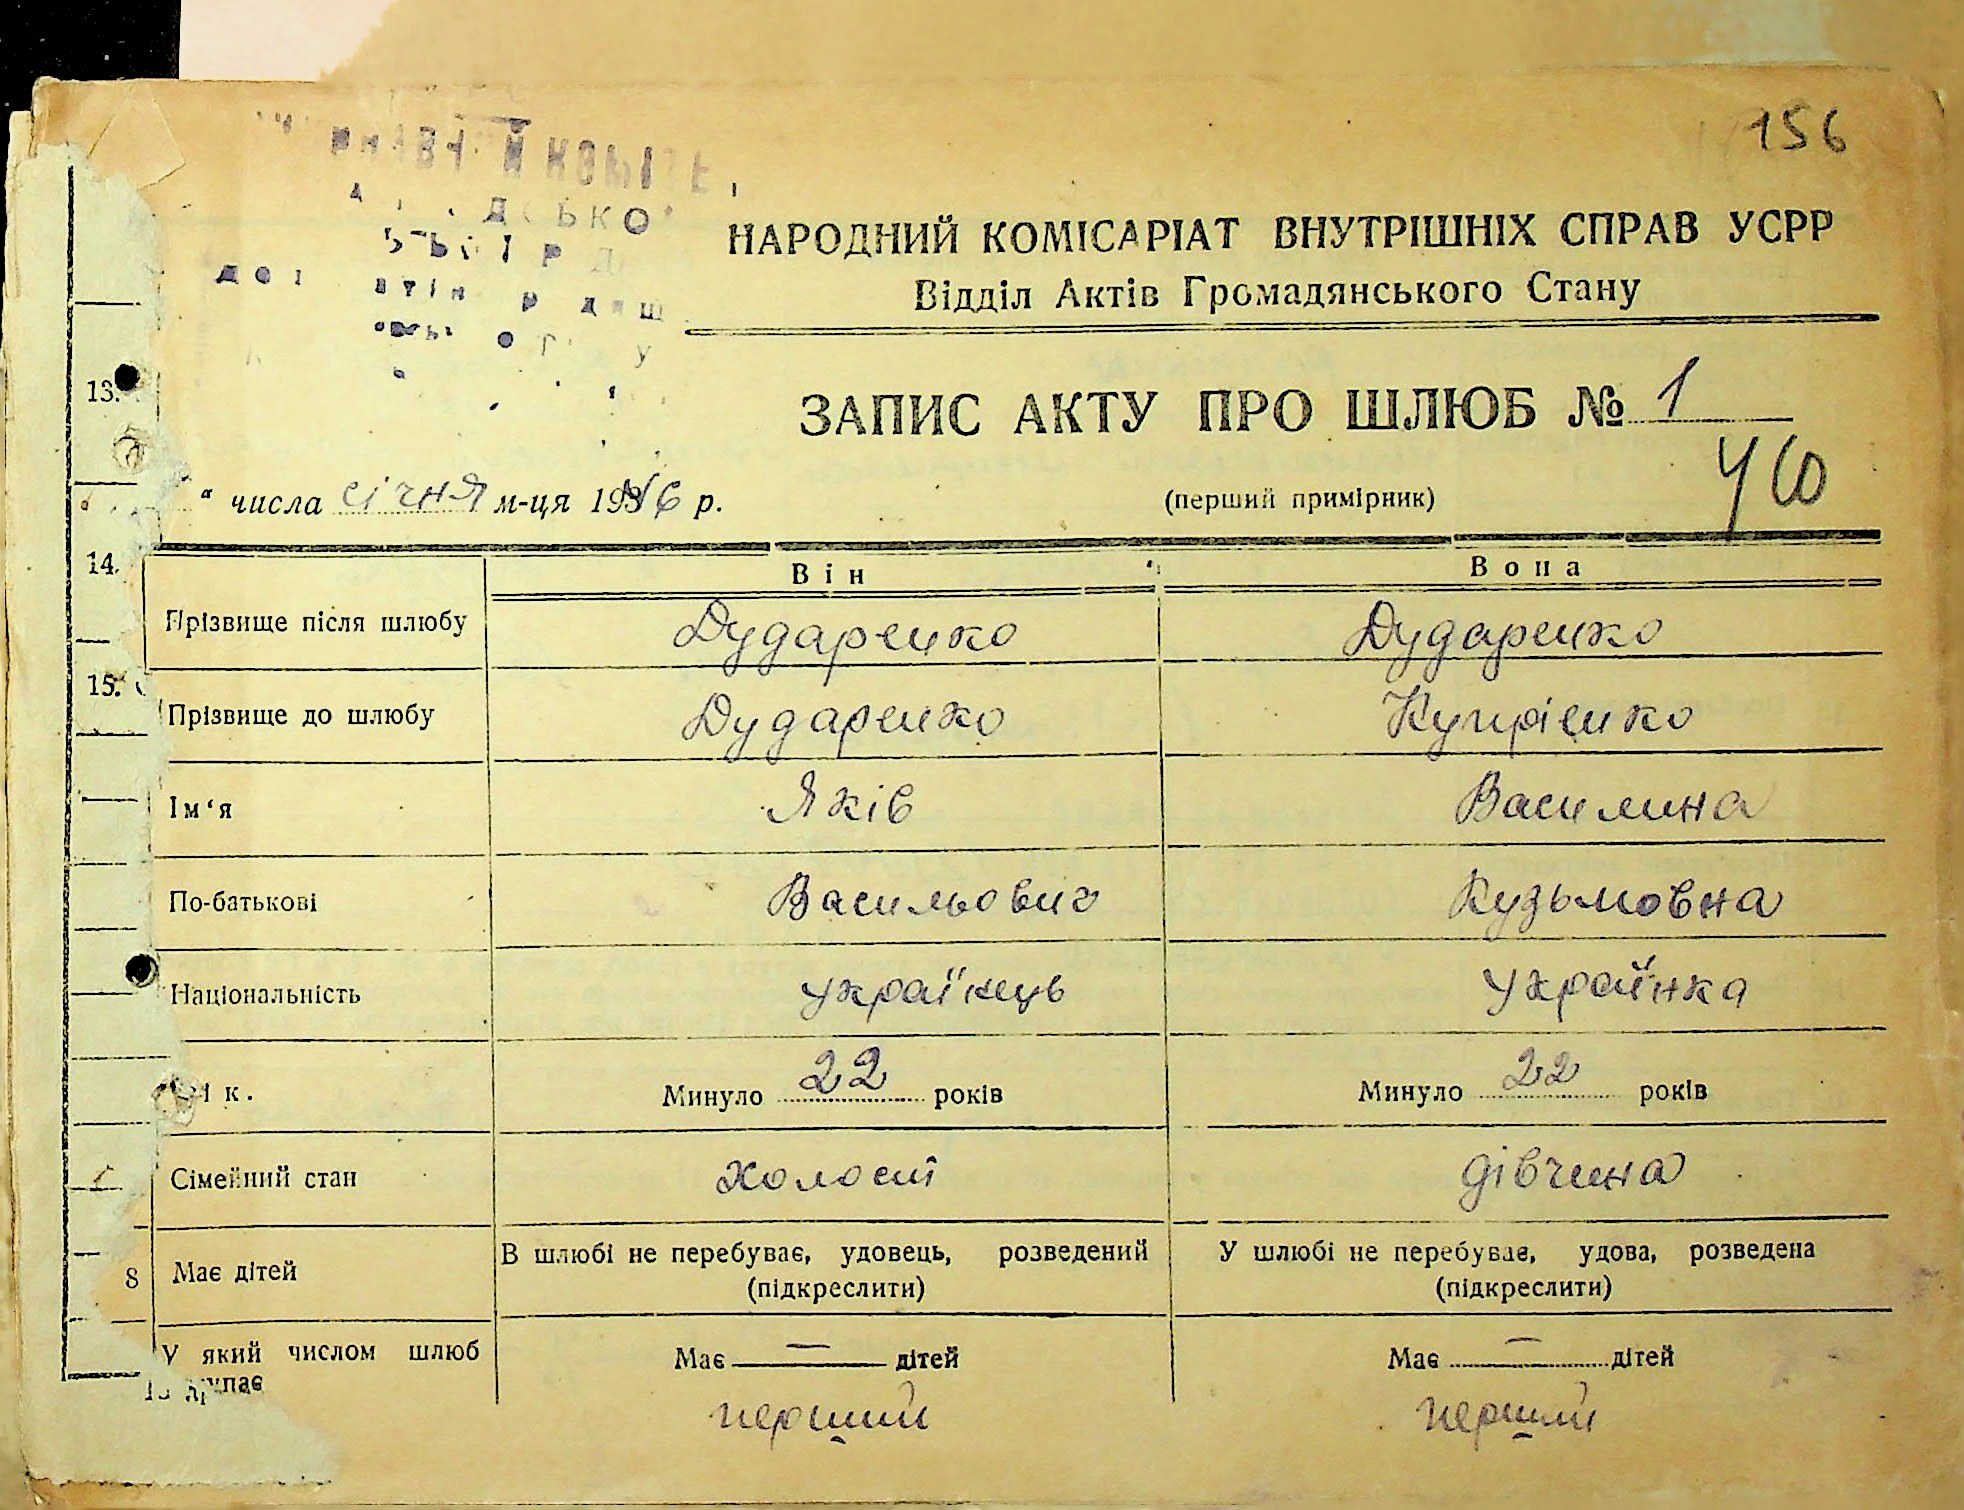 156
НАРОДНИЙ КОМІСАРІАТ ВНУТРІШНІХ СПРАВ УСРР
Відділ Актів Громадянського Стану
ЗАПИС АКТУ ПРО ШЛЮБ № 1
13.
“ числа січня м-ця 1936 р.
(перший примірник)
14.
Він Вона
Прізвище після шлюбу Дударенко Дударенко
15.
Прізвище до шлюбу Дударенко Купрієнко
Ім‘я Яків Василина
По-батькові Васильович Кузьмовна
Національність українець українка
ік. Минуло 22 років Минуло 22 років
Сімейний стан холост дівчина
8
Має дітей В шлюбі не перебуває, удовець, розведений (підкреслити) У шлюбі не перебуває, удова, розведена (підкреслити)
У який числом шлюб Має — дітей Має — дітей
перший перший